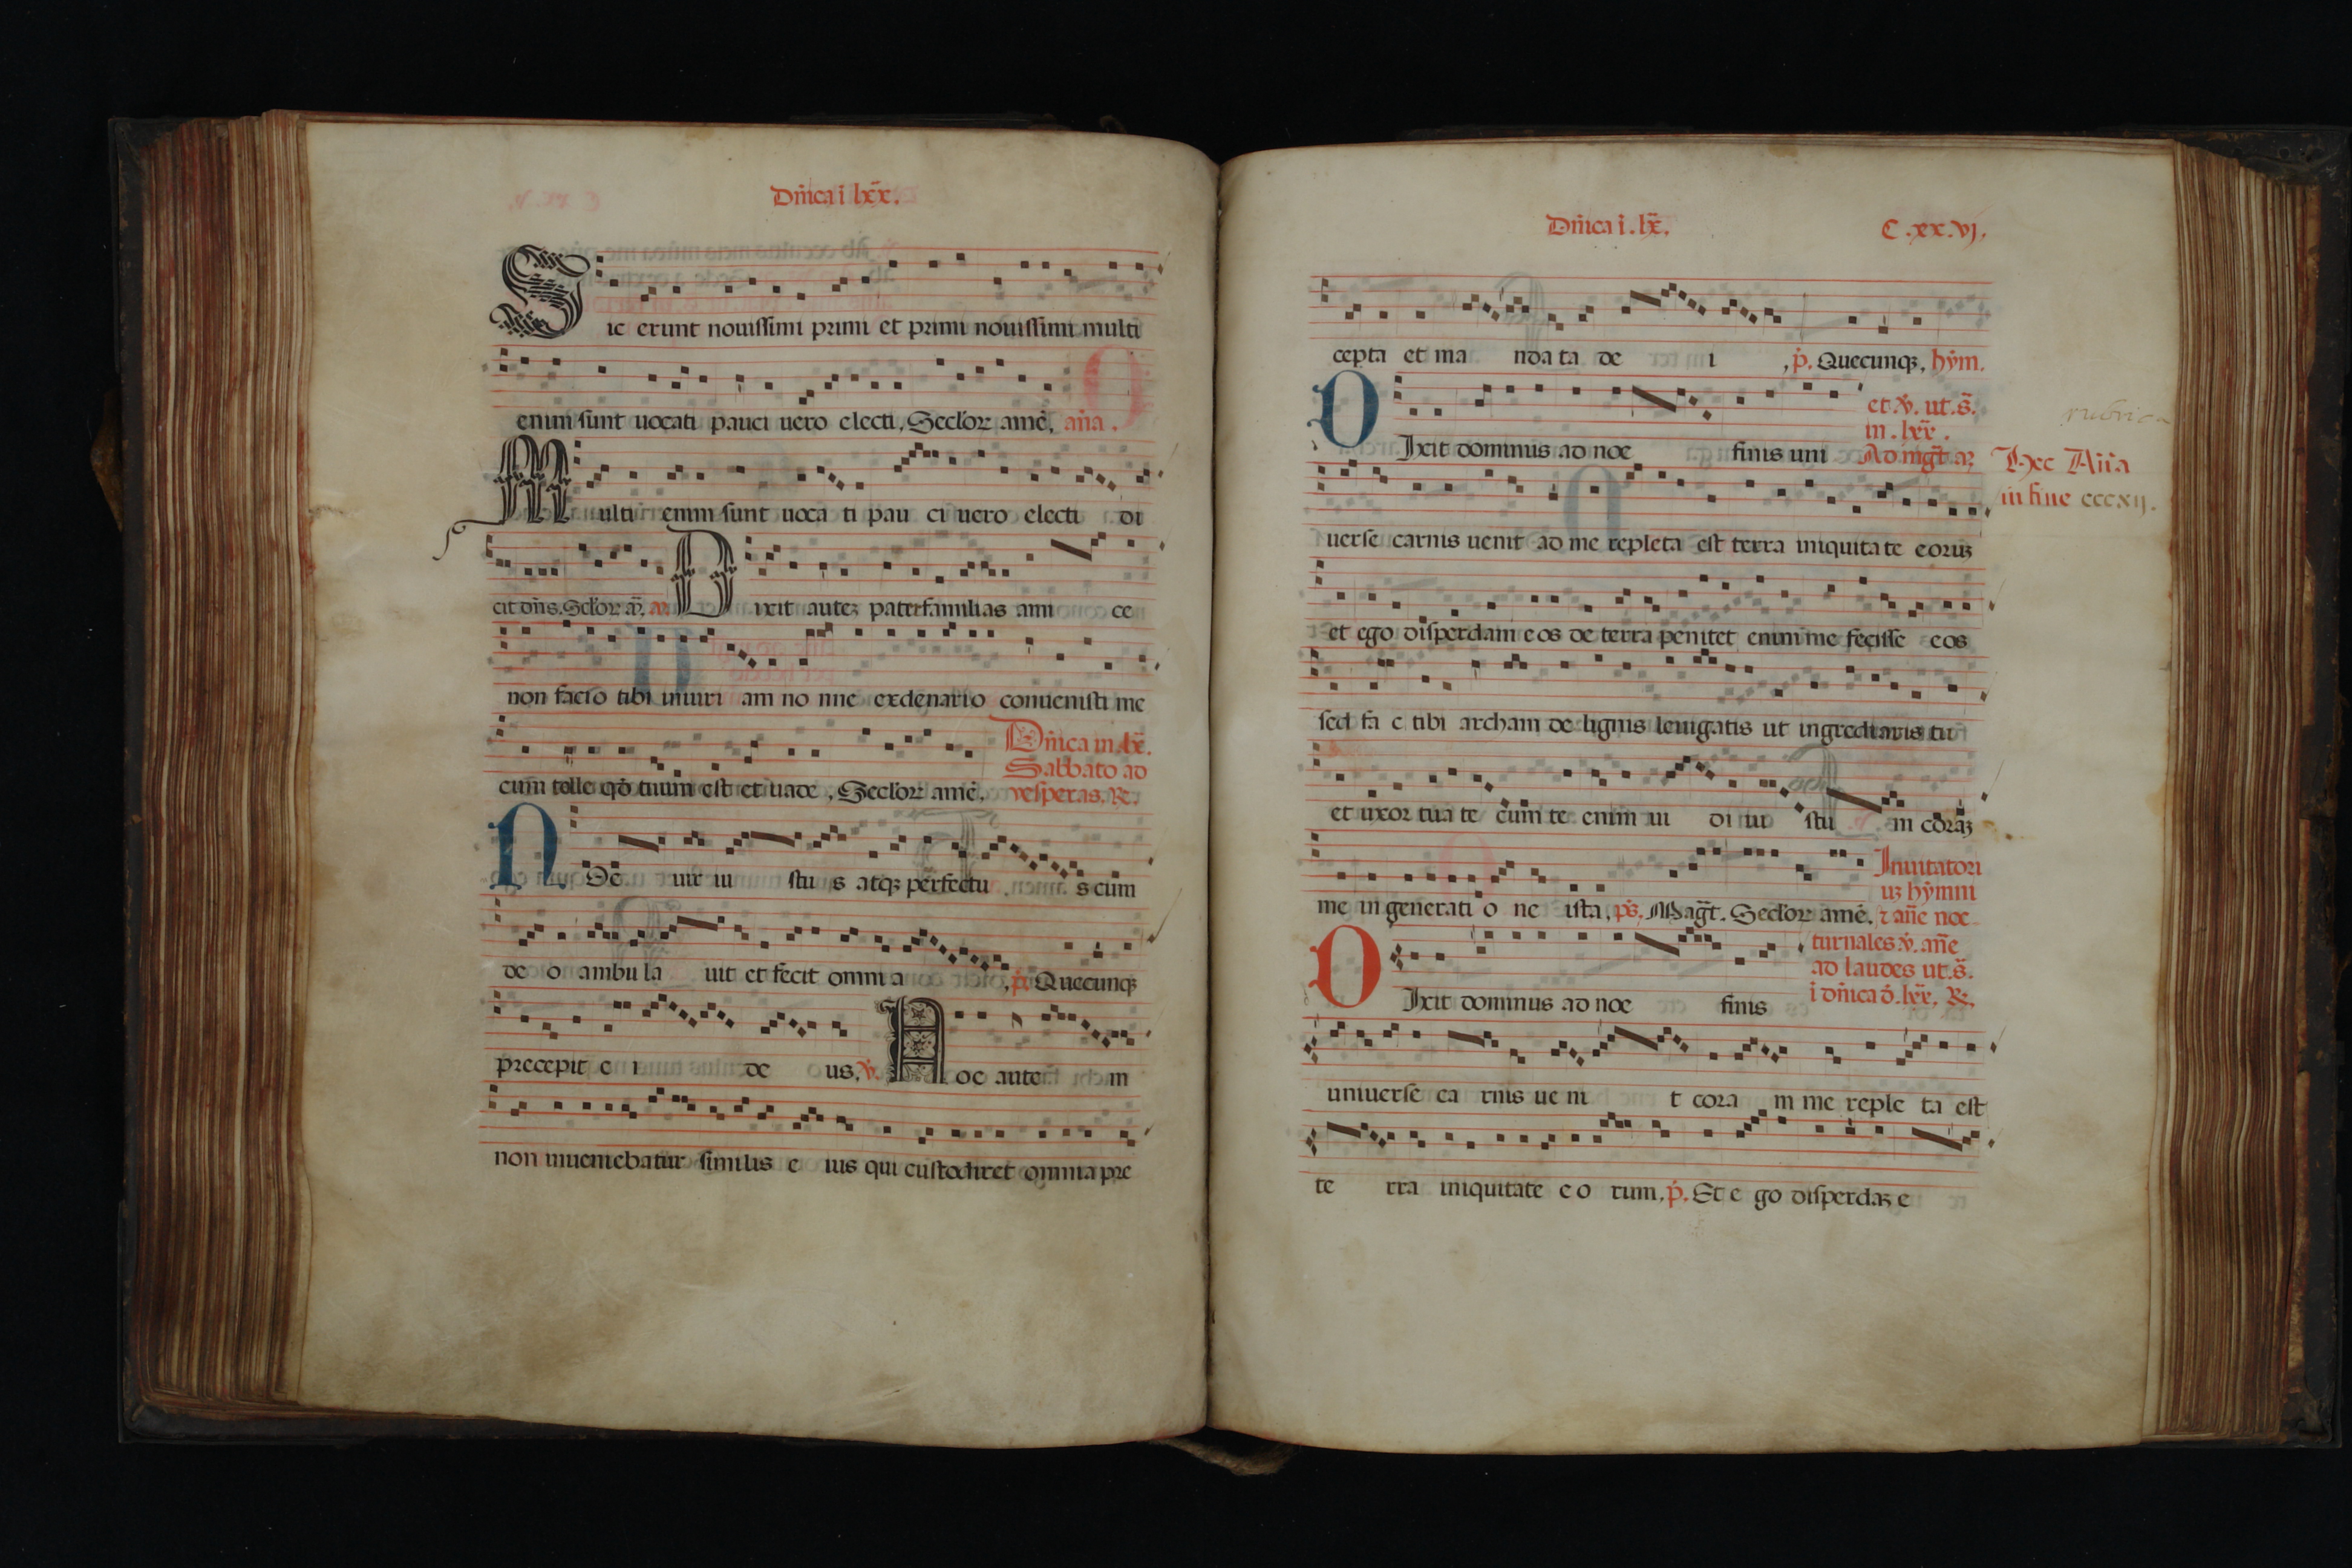 Dñica i lxx̄.
Sic erunt nouissimi primi et primi nouissimi multi
enim sunt uocati pauci uero electi, Seclor̄ amē, aña.
Multi enim sunt uoca ti pau ci uero electi di
cit dñs. Sclor̄ am̄. añ. Dixit autez paterfamilias ami ce
non facio tibi iniuri am no nne exdenario conuenisti me
cum tolle qđ tuum est et uade, Seclor̄ amē,
Dñica in lx̄.
Sabbato ad
vesperas. R.
Noe uir iu stu s atqꝫ perfectu s cum
de o ambula uit et fecit omni a , p̄. Quecunqꝫ
precepit e i de us, v̄. Noe autem in
non inueniebatur similis e ius qui custodiret omnia pre
Dñica i. lx̄.
C.xx.vj.
cepta et ma nda ta de i , p̄. Quecunqꝫ, hym̄.
et v̄. ut. s̄.
in. lxx̄.
Dixit dominus ad noe finis uni Ad mgt̄. añ
rubrica
Hec Aña
in fine cccxij.
uerse carnis uenit ad me repleta est terra iniquitate eoruꝫ
et ego disperdam eos de terra penitet enim me fecisse eos
sed fa c tibi archam de lignis leuigatis ut ingrediaris tu
et uxor tua te cum te enim ui di iu stu m coraꝫ
me in generati o ne ista, ps̄. Magt̄. Seclor̄ amē.
Inuitatori
uꝫ hymni
⁊ añe noc
turnales. v̄. añe
ad laudes ut. s̄.
i dñica đ. lxx̄. R.
Dixit dominus ad noe finis
uniuerse ca rnis ue ni t cora m me reple ta est
te rra iniquitate e o rum, p̄. Et e go disperdaꝫ e